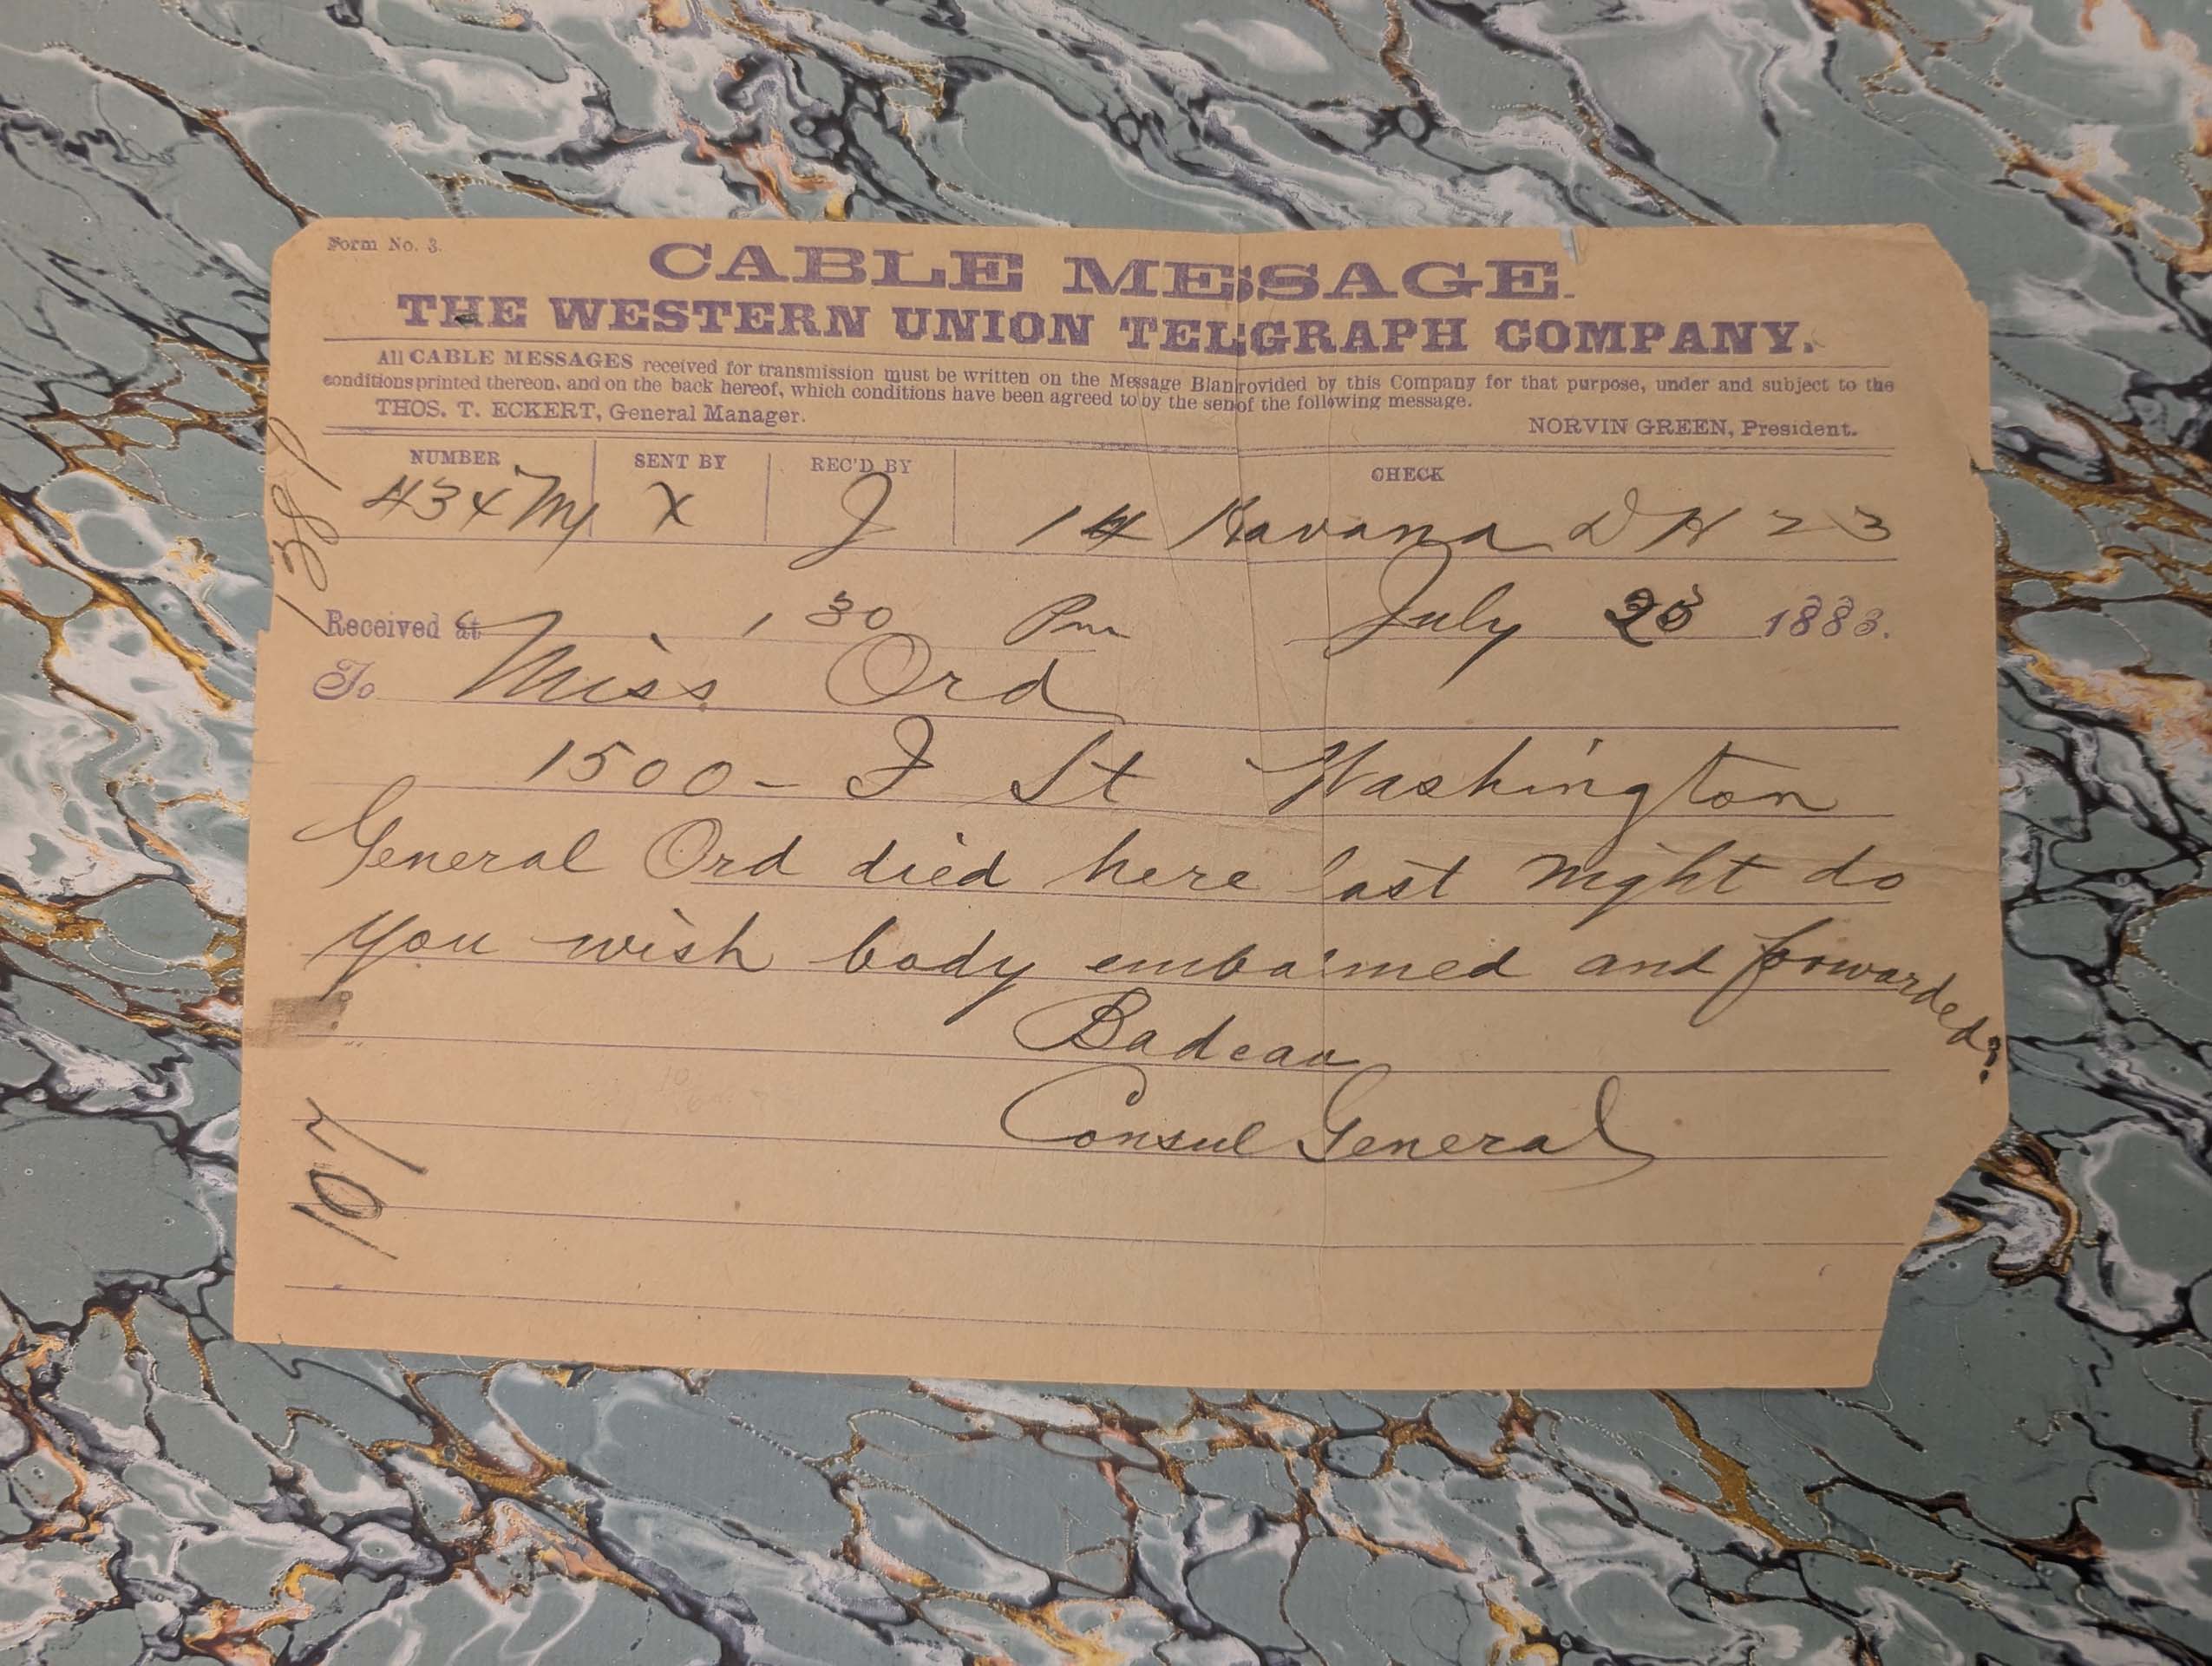 Form No. 3.
CABLE MESSAGE.
THE WESTERN UNION TELGRAPH COMPANY.
All CABLE MESSAGES received for transmission must be written on the Message Blan rovided by this Company for that purpose, under and subject to the
conditions printed thereon, and on the back hereof, which conditions have been agreed to by the sen of the following message.
THOS. T. ECKERT, General Manager.
NORVIN GREEN, President.
NUMBER SENT BY REC'D BY CHECK
434 M X J 14 Havana DH 23
138 P
Received at 1 30 Pm July 23 1883.
To Miss Ord
1500 - I St Washington
General Ord died here last night do
you wish body embalmed and forwarded?
Badeau
Consul General
107